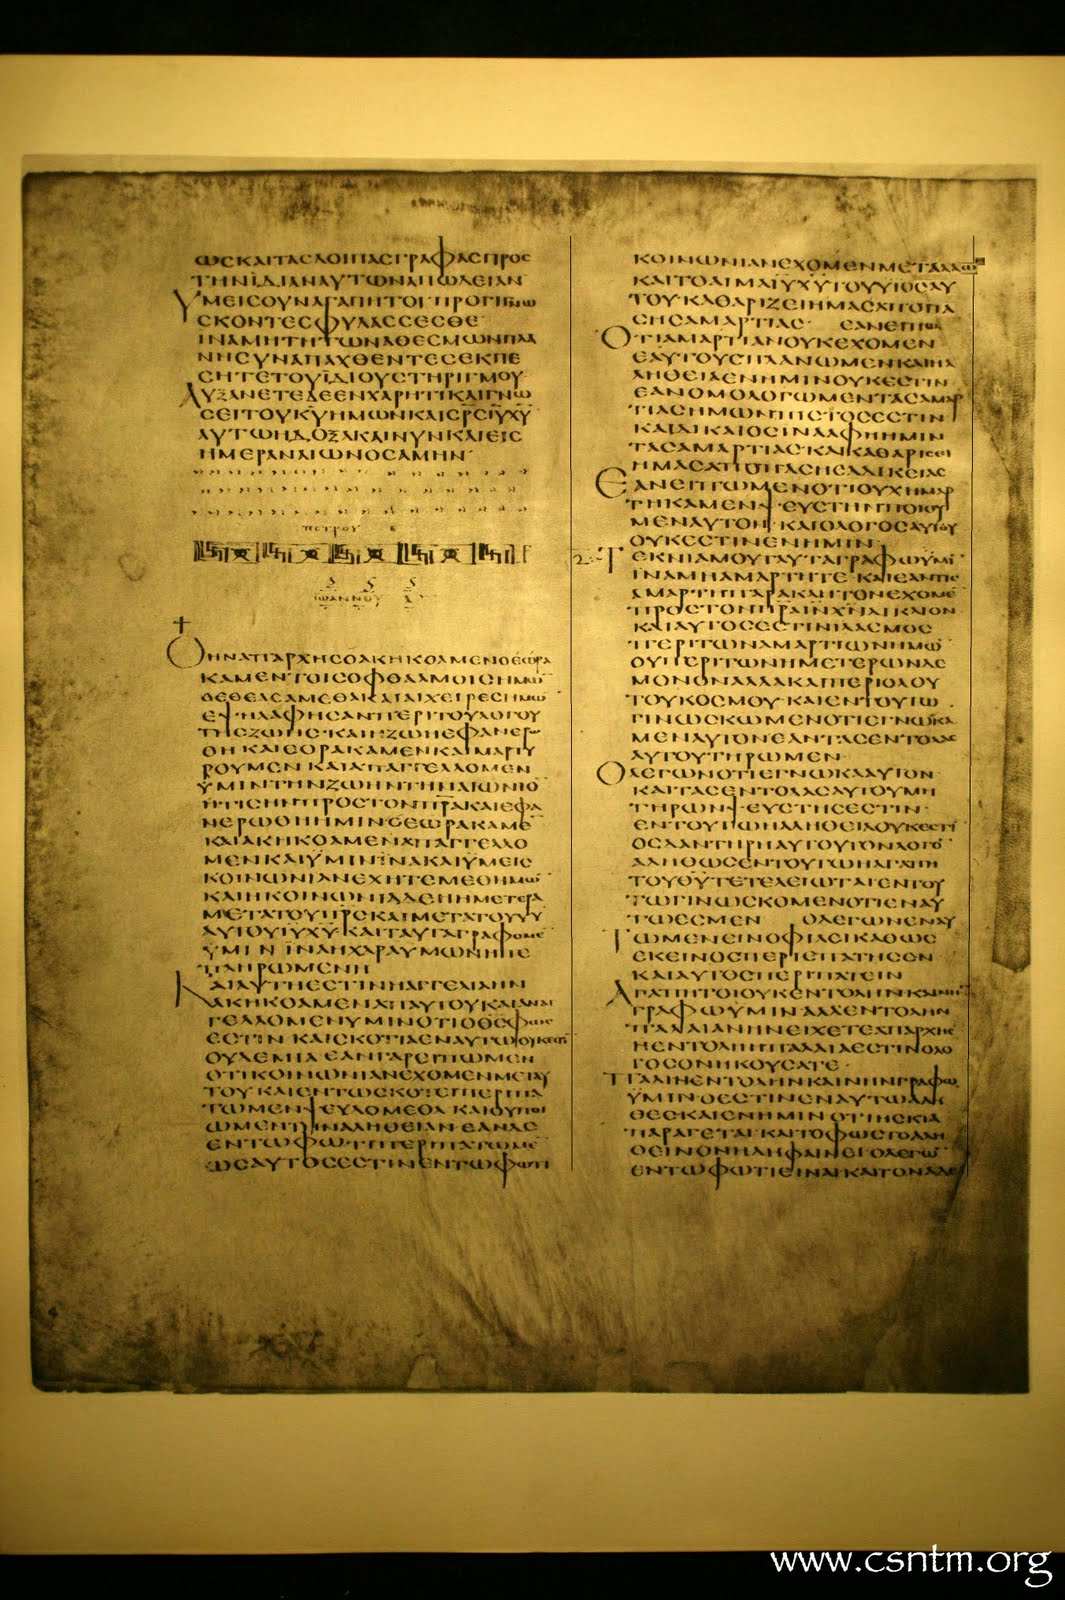 ωσκαιτασλοιπασγραφασπροσ
τηνϊδιαναυτωναπωλειαν
υμεισουναγαπητοιπρογινω
σκοντεσφυλασσεσθε
ιναμητητωναθεσμωνπλα
νησυναπαχθεντεσεκπε
σητετουϊδιουστηριγμου
αυξανετεδεενχαριτικαιγνω
σειτουκυημωνκαισρσιυχυ
αυτωηδοξακαινυνκαιεισ
ημεραναιωνοσαμην
πετρου β
ιωαννου α
οηναπαρχησοακηκοαμενοεωρα
καμεντοισοφθαλμοισημω
οεθεασαμεθακαιαιχειρεσημω
εψηλαφησανπεριτουλογου
τησζωησκαιηζωηεφανερω
θηκαιεορακαμενκαιμαρτυ
ρουμενκαιαπαγγελλομεν
ϋμιντηνζωηντηναιωνιο
ητισηνπροστονπρακαιεφα
νερωθηημινοεωρακαμε
καιακηκοαμεναπαγγελλο
μενκαιϋμινϊνακαιϋμεισ
κοινωνιανεχητεμεθημω
καιηκοινωνιαδεηημετερα
μετατουπρσκαιμετατουυυ
αυτουιυχυκαιταυταγραφομε
ϋμινϊναηχαραυμωνηησ
πεπληρωμενη
καιαυτηεστινηαγγελιαην
ακηκοαμεναπαυτουκαιαναγ
γελλομενυμινοτιοθσφωσ
εστινκαισκοτιαεναυτωουκεστι
ουδεμιαεανγαρειπωμεν
οτικοινωνιανεχομενμεταυ
τουκαιεντωσκοτειπεριπα
τωμενψευδομεθακαιουποι
ωμεντηναληθειανεανδε
εντωφωτιπεριπατωμε
ωσαυτοσεστινεντωφωτι
κοινωνιανεχομενμεταλλω
καιτοαιμαιυχυτουυιουαυ
τουκαθαριζειημασαποπα
σησαμαρτιασ εανειπωμε
οτιαμαρτιανουκεχομεν
εαυτουσπλανωμενκαιηα
ληθειαενημινουκεστιν
εανομολογωμεντασαμαρ
τιασημωνπιστοσεστιν
καιδικαιοσινααφηημιν
τασαμαρτιασκαικαθαρισει
ημασαποπασησαδικειασ
εανειπωμενοτιουχημαρ
τηκαμενψευστηνποιου
μεναυτονκαιολογοσαυτου
ουκεστινενημιν
τεκνιαμουταυταγραφωϋμι
ιναμηαμαρτητεκαιεαντισ
αμαρτηπαρακλητονεχομε
προστονπραινχνδικαιον
καιαυτοσεστινιλασμοσ
περιτωναμαρτιωνημω
ουπεριτωνημετερωνδε
μονοναλλακαιπεριολου
τουκοσμουκαιεντουτω
γινωσκωμενοτιεγνωκα
μεναυτονεαντασεντολασ
αυτουτηρωμεν
ολεγωνοτιεγνωκααυτον
καιτασεντολασαυτουμη
τηρωνψευστησεστιν
εντουτωηαληθειαουκεστι
οσδαντηρηαυτουτονλογο
αληθωσεντουτωηαγαπη
τουθυτετελειωταιεντου
τωγινωσκομενοτιεναυ
τωεσμεν ολεγωνεναυ
τωμενεινοφιλεικαθωσ
εκεινοσπεριεπατησεν
καιαυτοσπεριπατειν
αγαπητοιουκεντοληνκαινη
γραφωυμιναλλεντολην
παλαιανηνειχετεαπαρχησ
ηεντοληηπαλαιαεστινολο
γοσονηκουσατε
παλινεντοληνκαινηνγραφω
ϋμινοεστινεναυτωαλη
θεσκαιενημινοτιησκια
παραγεταικαιτοφωστοαλη
θεινονηδηφαινειολεγω
εντωφωτιειναικαιτοναδελ
www.csntm.org